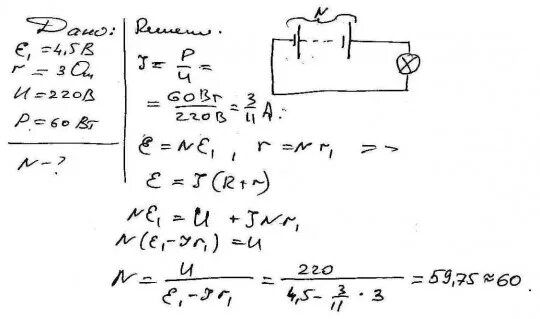 Дано:
ℰ₁ = 4,5 В
r = 3 Ом
U = 220 В
P = 60 Вт
N - ?
Решение.
N
J = P/U =
= 60Вт/220В = 3/11 А.
ℰ = Nℰ₁, r = Nr₁ =>
ℰ = J(R+r)
Nℰ₁ = U + JNr₁
N(ℰ₁-Jr₁) = U
N = U/(ℰ₁-Jr₁) = 220/(4,5 - 3/11 · 3) = 59,75 ≈ 60.